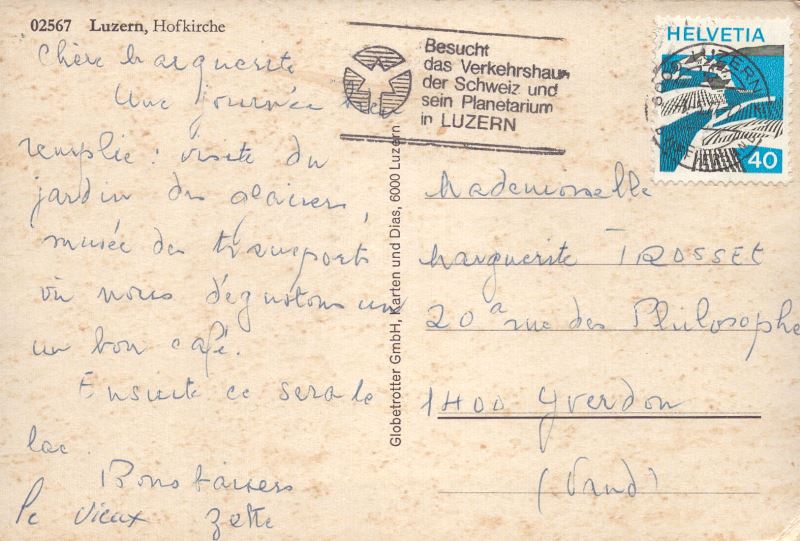 02567 Luzern, Hofkirche
Besucht
das Verkehrshaus
der Schweiz und
sein Planetarium
in LUZERN
HELVETIA
40
LUZERN
Chère Marguerite
Une journée bien
remplie : visite du
jardin des glaciers,
musée des transports
où nous dégustons un
un bon café.
Ensuite ce sera le
lac.
Bons baisers
Le vieux Zette
Globetrotter GmbH, Karten und Dias, 6000 Luzern
Mademoiselle
Marguerite TROSSET
20a rue des Philosophe
1400 Yverdon
(Vaud)